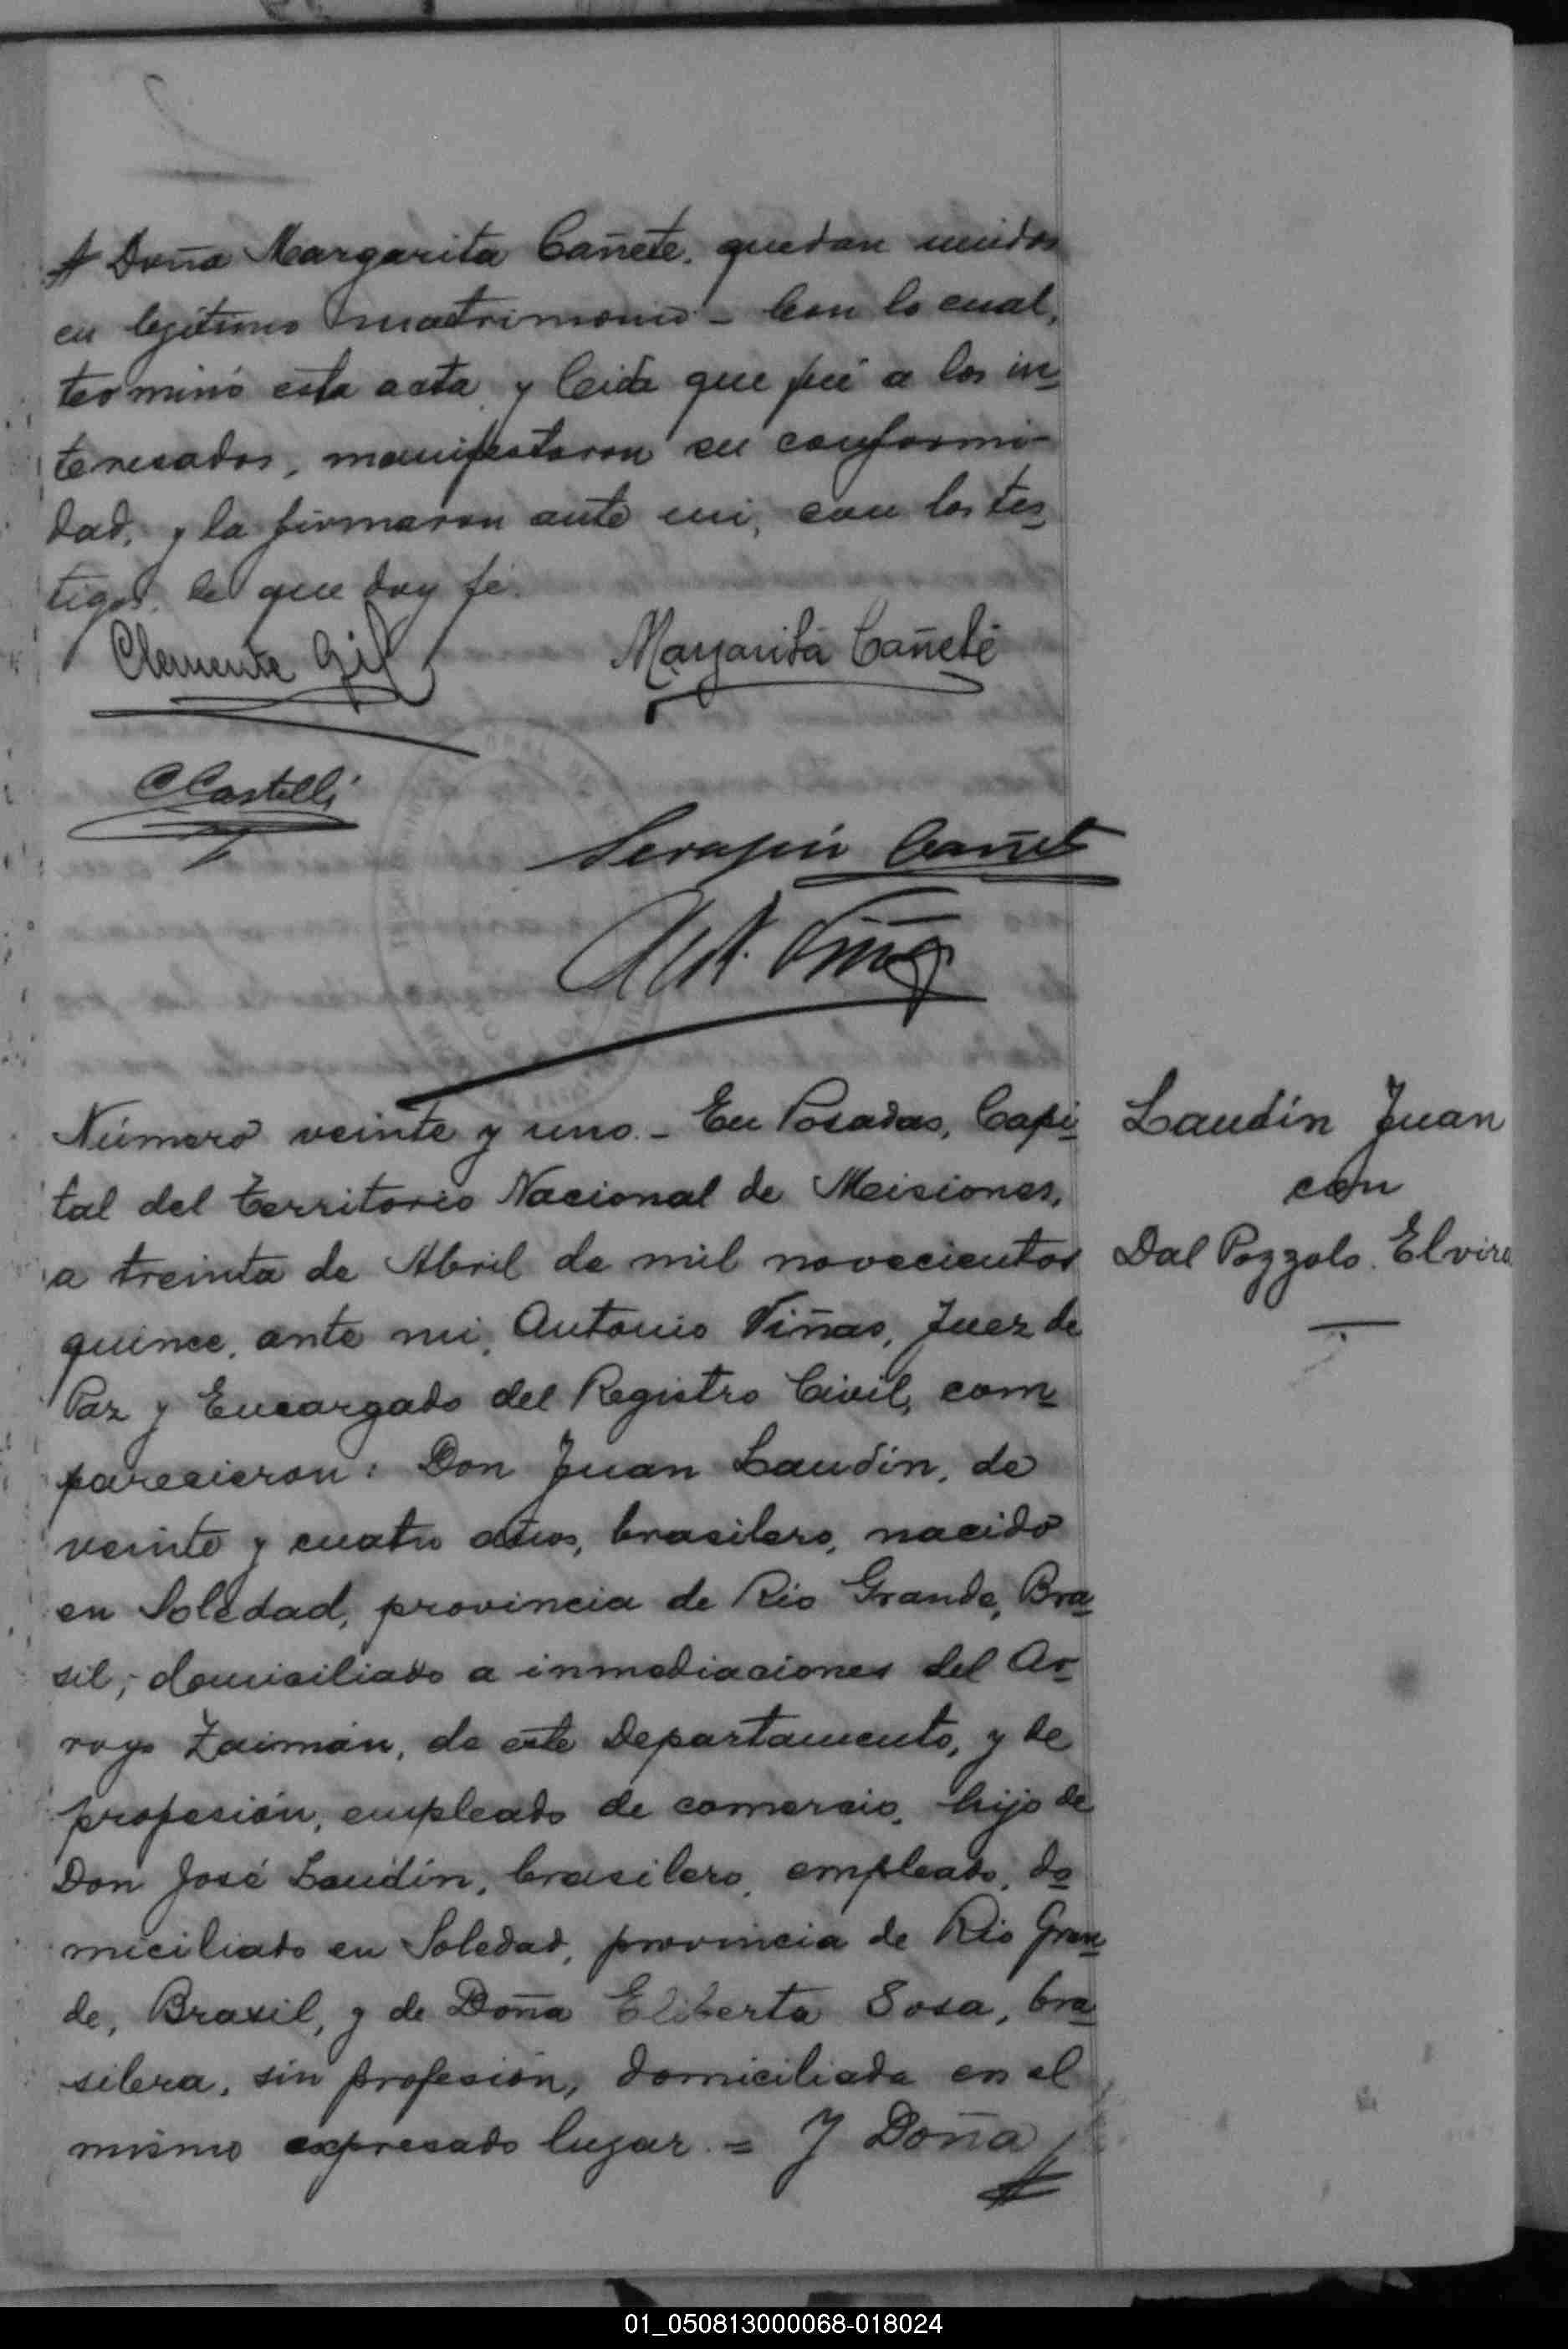 Doña Margarita Cañete. quedan unidos
en legitimo matrimonio - Con lo cual,
terminó esta acta, y leida que fué a los in-
teresados, manifestaron su conformi-
dad, y la firmaron ante mi, con los tes-
tigos, de que doy fé.
Clemente Gil
Margarita Cañete
C Castelli
Serafin Cañete
Ant. Viñas
Número veinte y uno. - En Posadas, Capi-
tal del territorio Nacional de Misiones,
a treinta de Abril de mil novecientos
quince, ante mi, Antonio Viñas, Juez de
Paz y Encargado del Registro Civil, com-
parecieron: Don Juan Laudin, de
veinte y cuatro años, brasilero, nacido
en Soledad, provincia de Rio Grande, Bra-
sil; domiciliado a inmediaciones del Ar-
royo Zaimán, de este Departamento, y de
profesión, empleado de comercio, hijo de
Don José Laudin, brasilero, empleado, do-
miciliado en Soledad, provincia de Rio Gran-
de, Brasil, y de Doña Eliberta Sosa, bra-
silera, sin profesión, domiciliada en el
mismo expresado lugar. = Y Doña
Laudin Juan
con
Dal Pozzolo. Elvira
01_050813000068-018024